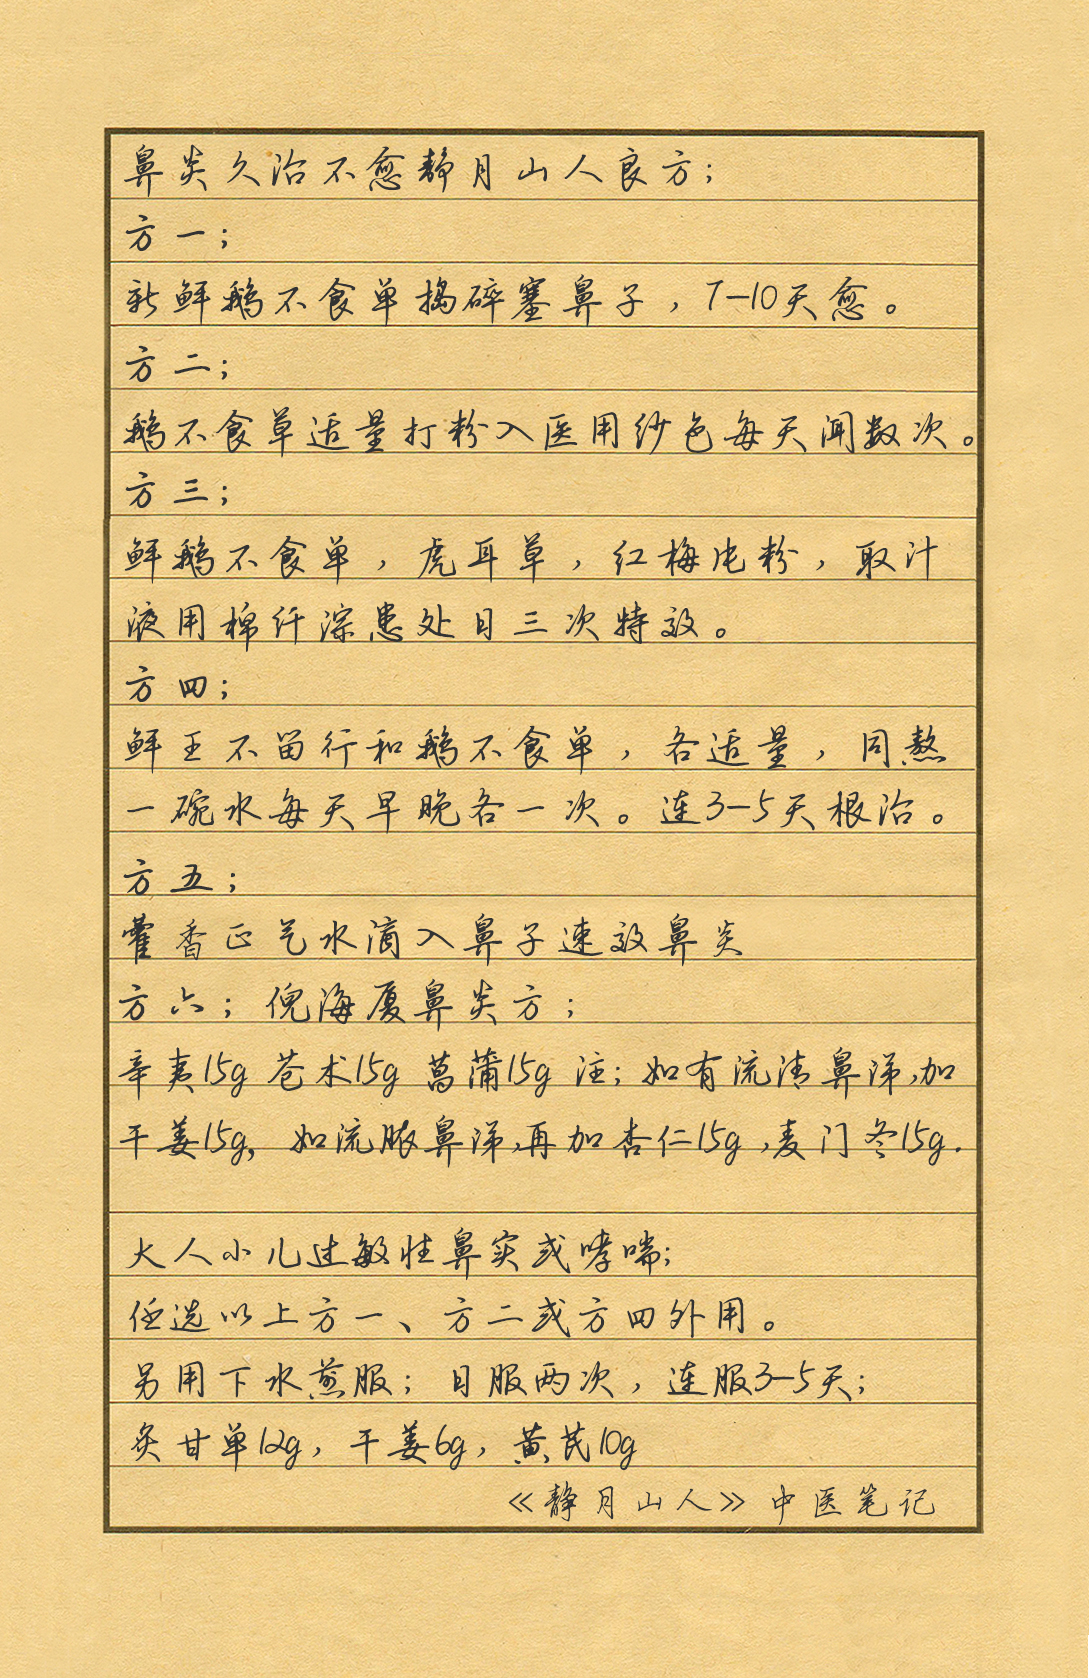 鼻炎久治不愈静月山人良方；
方一；
新鲜鹅不食草捣碎塞鼻子，7-10天愈。
方二；
鹅不食草适量打粉入医用纱包每天闻数次。
方三；
鲜鹅不食草，虎耳草，红梅电粉，取汁
液用棉纤深患处日三次特效。
方四；
鲜王不留行和鹅不食草，各适量，同熬
一碗水每天早晚各一次。连3-5天根治。
方五；
藿香正气水滴入鼻子速效鼻炎
方六；倪海厦鼻炎方；
辛夷15g 苍术15g 菖蒲15g 注；如有流清鼻涕，加
干姜15g，如流脓鼻涕，再加杏仁15g，麦门冬15g.
大人小儿过敏性鼻炎或哮喘；
任选以上方一、方二或方四外用。
另用下水煎服；日服两次，连服3-5天；
炙甘草12g，干姜6g，黄芪10g
《静月山人》中医笔记